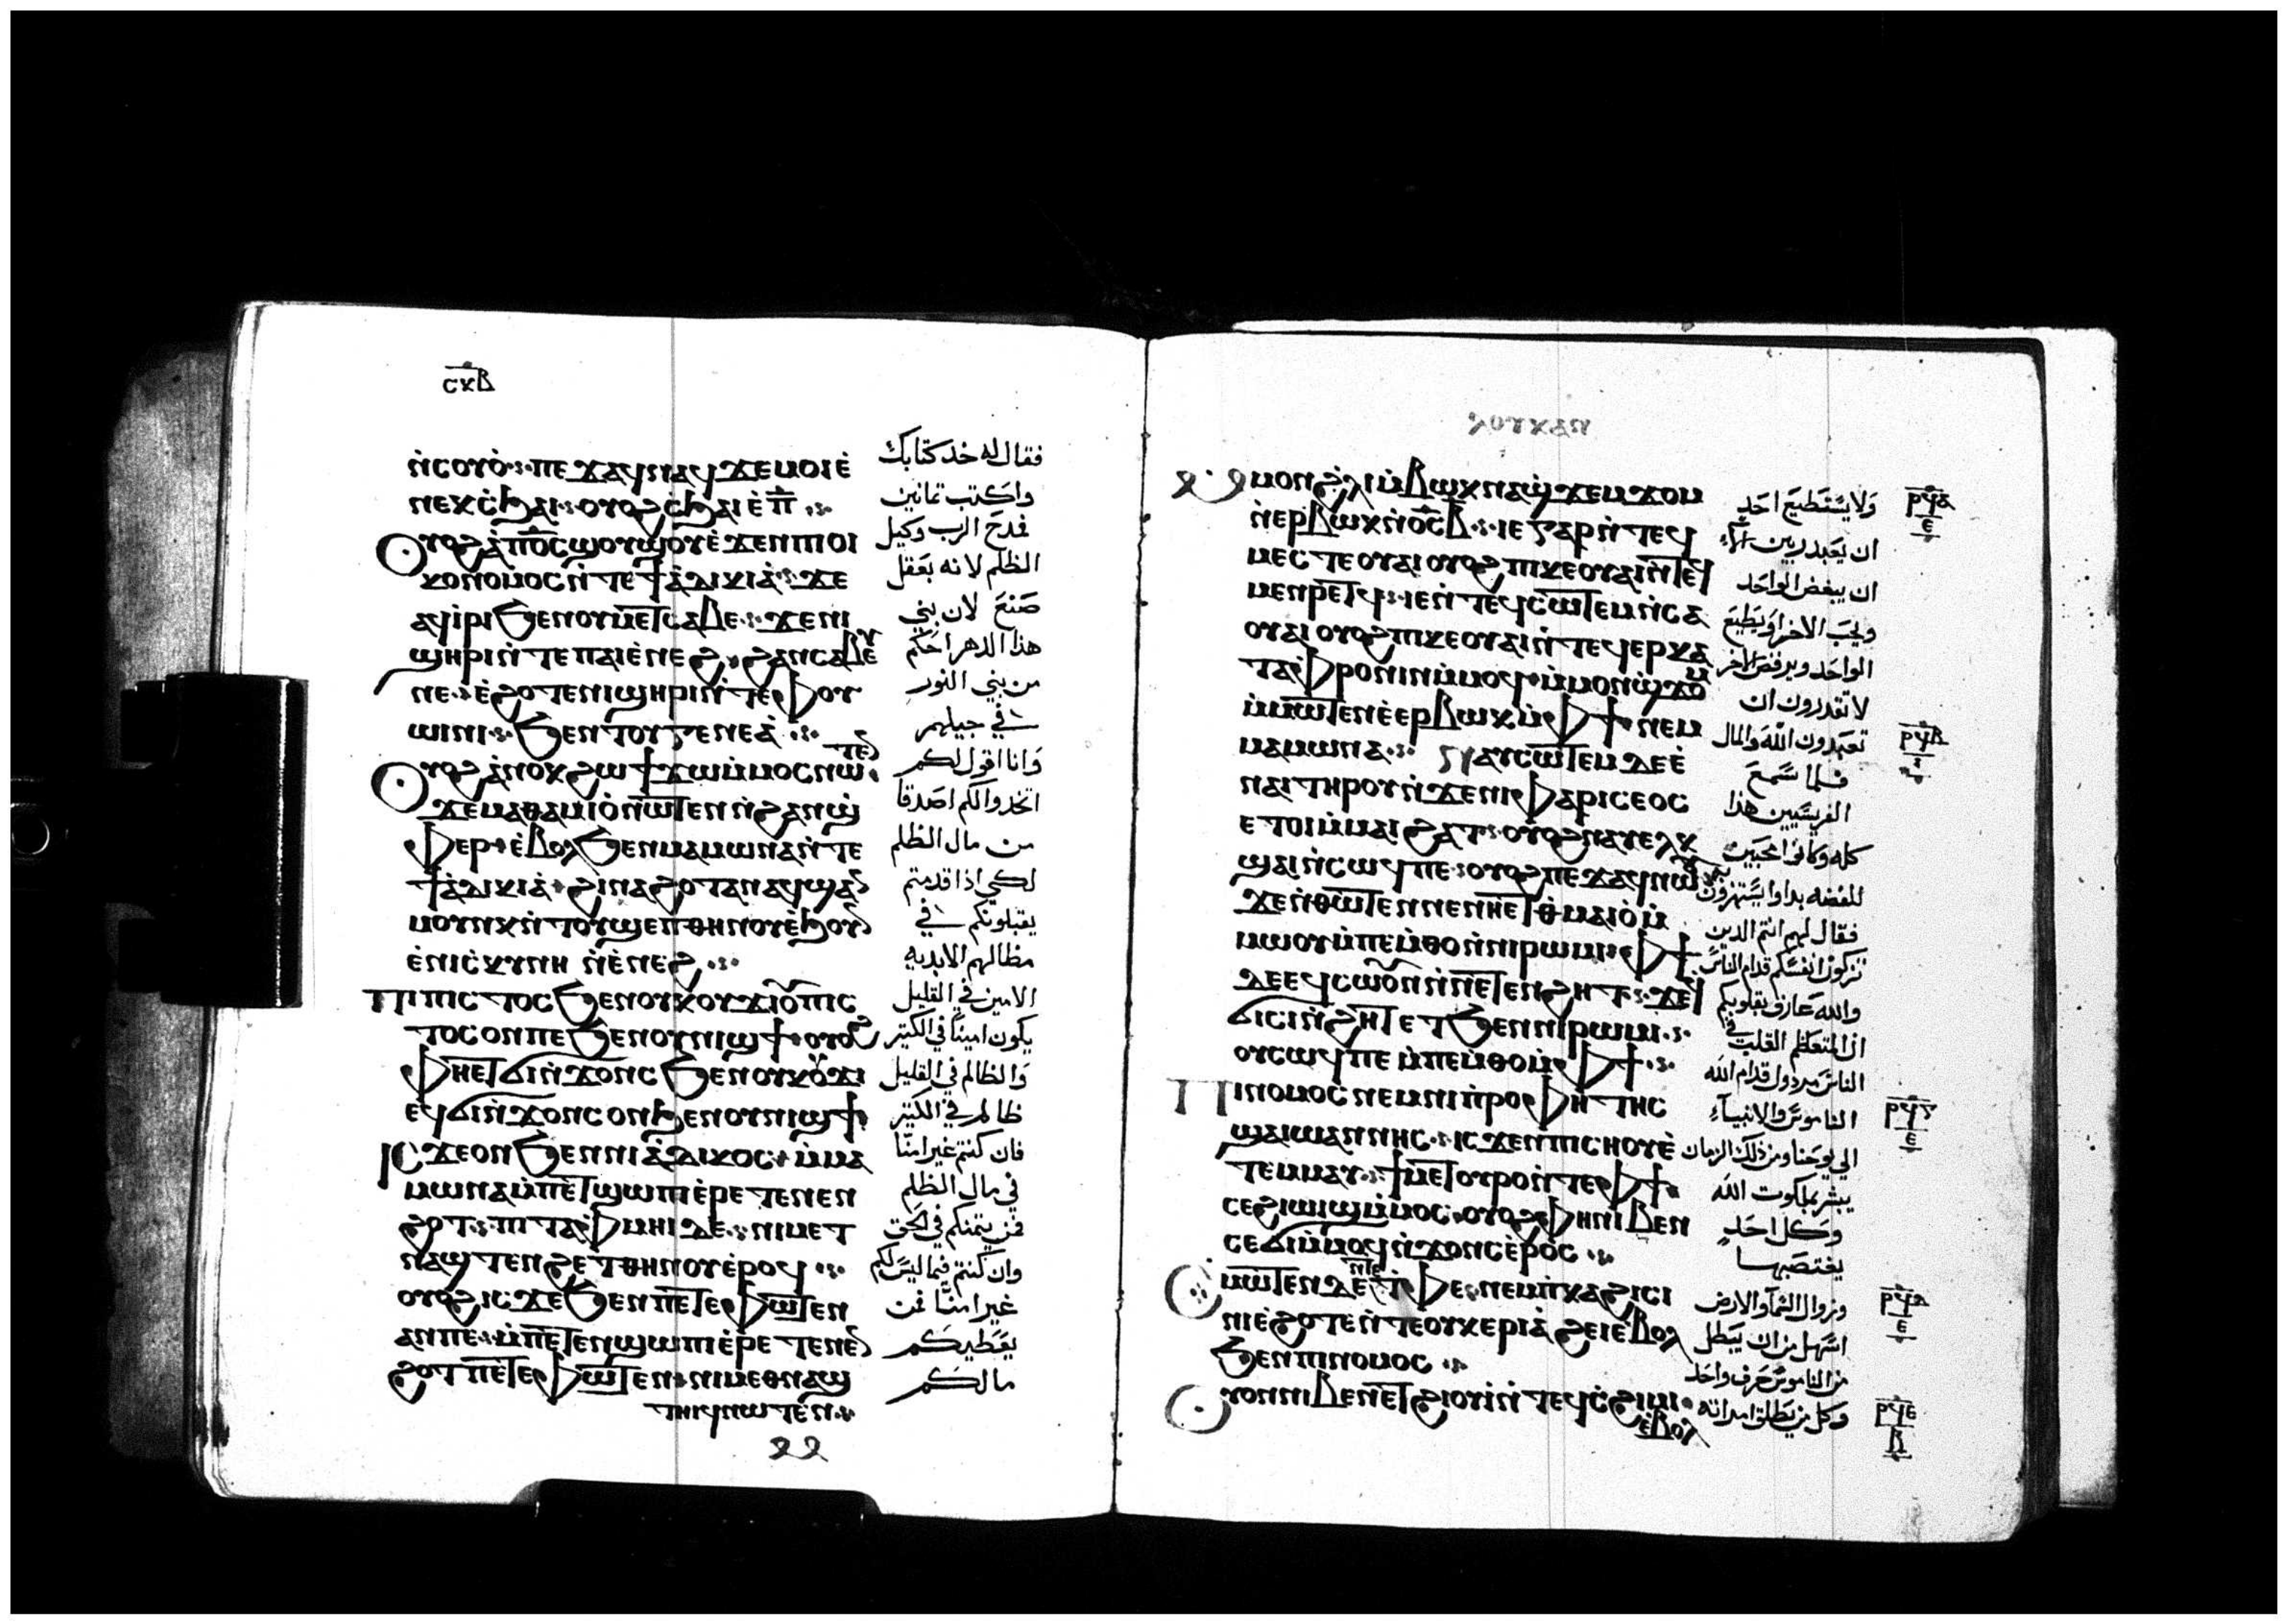 ⲥⲕⲃ
ⲛ̀ⲥⲟⲩⲟ̀ ⲡⲉϫⲁϥⲛⲁϥ ϫⲉⲙⲟⲓⲉ̀
ⲛⲉⲕⲥ̀ϧⲁⲓ ⲟⲩⲟϩ ⲥ̀ϧⲁⲓ ⲉ̀ⲡ̅
ⲟⲩⲟϩ ⲁ̀ⲡⲟ̅ⲥ̅ ϣⲟⲩϣⲟⲩ ⲉ̀ϫⲉⲛⲡⲓⲟⲓ
ⲕⲟⲛⲟⲙⲟⲥ ⲛ̀ⲧⲉϯⲁ̀ⲇⲓⲕⲓⲁ̀ ϫⲉ
ⲁϥⲓ̀ⲣⲓ ϧⲉⲛⲟⲩⲙⲉⲧⲥⲁⲃⲉ ϫⲉⲛⲓ
ϣⲏⲣⲓ ⲛ̀ⲧⲉⲡⲁⲓⲉ̀ⲛⲉϩ ϩⲁⲛⲥⲁⲃⲉⲩ
ⲛⲉ ⲉ̀ϩⲟⲧⲉⲛⲓϣⲏⲣⲓ ⲛ̀ⲧⲉⲫⲟⲩ
ⲱⲓⲛⲓ ϧⲉⲛⲧⲟⲩⲅⲉⲛⲉⲁ̀
ⲟⲩⲟϩ ⲁ̀ⲛⲟⲕ ϩⲱ ϯϫⲱⲙ̀ⲙⲟⲥ ⲛⲱⲧⲉⲛ
ϫⲉⲙⲁⲑⲁⲙⲓⲟ̀ⲛⲱⲧⲉⲛ ⲛ̀ϩⲁⲛϣ̀
ⲫⲏⲣ ⲉ̀ⲃⲟⲗ ϧⲉⲛⲙⲁⲙⲱⲛⲁ ⲛ̀ⲧⲉ
ϯⲁ̀ⲇⲓⲕⲓⲁ̀ ϩⲓⲛⲁ ϩⲟⲧⲁⲛ ⲁϥϣⲁⲛ
ⲙⲟⲩⲛⲕ ⲛ̀ⲧⲟⲩϣⲉⲡⲑⲏⲛⲟⲩ ⲉ̀ϧⲟⲩⲛ
ⲉ̀ⲛⲓⲥ̀ⲕⲩⲛⲏ ⲛ̀ⲉ̀ⲛⲉϩ
ⲡⲓⲡⲓⲥⲧⲟⲥ ϧⲉⲛⲟⲩⲕⲟⲩϫⲓ ⲟⲩⲡⲓⲥ
ⲧⲟⲥ ⲟⲛⲡⲉ ϧⲉⲛⲟⲩⲛⲓϣϯ ⲟⲩⲟϩ
ⲫⲏⲉⲧϭⲓⲛ̀ϫⲟⲛⲥ ϧⲉⲛⲟⲩⲕⲟⲩϫⲓ
ⲉϥϭⲓⲛ̀ϫⲟⲛⲥ ⲟⲛ ϧⲉⲛⲟⲩⲛⲓϣϯ
ⲓⲥϫⲉⲟⲛ ϧⲉⲛⲛⲓⲁ̀ⲇⲓⲕⲟⲥ ⲙ̀ⲙⲁ
ⲙⲱⲛⲁ ⲙ̀ⲡⲉⲧϣⲱⲡⲓ ⲉ̀ⲣⲉⲧⲉⲛⲉⲛ
ϩⲟⲧ ⲡⲓⲧⲁⲫⲙⲏⲓ ⲇⲉ ⲛⲓⲙⲉⲧ
ⲛⲁϣⲧⲉⲛϩⲉⲧⲑⲏⲛⲟⲩ ⲉ̀ⲣⲟϥ
ⲟⲩⲟϩ ⲓⲥϫⲉ ϧⲉⲛⲡⲉⲧⲉⲫⲱⲧⲉⲛ
ⲁⲛⲡⲉ ⲙ̀ⲡⲉⲧⲉⲛϣⲱⲡⲓ ⲉ̀ⲣⲉⲧⲉⲛⲉⲛ
ϩⲟⲧ ⲡⲉⲧⲉⲫⲱⲧⲉⲛ ⲛⲓⲙⲉⲑⲛⲁϣ
ⲧⲏⲓϥⲛⲱⲧⲉⲛ
فقال له خد كتابك
واكتب تمانين
فمدح الرب وكيل
الظلم لانه بعقل
صنع لان بني
هذا الدهر احكم
من بني النور
في جيلهم
وانا اقول لكم
اتخدوا لكم اصدقا
من مال الظلم
لكي اذا قدمتم
يقبلونكم في
مظالهم الابديه
الامين في القليل
يكون امينا في الكثير
والظالم في القليل
ظالم في الكثير
فان كنتم غير امنا
في مال الظلم
فمن يتمنكم في الحق
وان كنتم فيما ليس لكم
غير امنا فمن
يعطيكم
مالكم
ⲗⲟⲩⲕⲁⲛ
ⲙ̀ⲙⲟⲛϩ̀ⲗⲓ ⲙ̀ⲃⲱⲕ ⲛⲁϣϫⲉⲙϫⲟⲙ
ⲛ̀ⲉⲣⲃⲱⲕ ⲛ̀ⲟ̅ⲥ̅ ⲃ̅ ⲓⲉ ⲅⲁⲣ ⲛ̀ⲧⲉϥ
ⲙⲉⲥⲧⲉⲟⲩⲁⲓ ⲟⲩⲟϩ ⲡⲓⲕⲉⲟⲩⲁⲓ ⲛ̀ⲧⲉϥ
ⲙⲉⲛⲣⲓⲧϥ ⲓⲉ ⲛ̀ⲧⲉϥⲥⲱⲧⲉⲙ ⲛ̀ⲥⲁ
ⲟⲩⲁⲓ ⲟⲩⲟϩ ⲡⲓⲕⲉⲟⲩⲁⲓ ⲛ̀ⲧⲉϥⲉⲣⲕⲁ
ⲧⲁⲫⲣⲟⲛⲓⲛ ⲙ̀ⲙⲟϥ ⲙ̀ⲙⲟⲛϣϫⲟⲙ
ⲙ̀ⲙⲱⲧⲉⲛ ⲉ̀ⲉⲣⲃⲱⲕ ⲙ̀ⲫϯ ⲛⲉⲙ
ⲙⲁⲙⲱⲛⲁ ⲉⲩⲁⲩⲥⲱⲧⲉⲙ ⲇⲉ ⲉ̀
ⲛⲁⲓⲧⲏⲣⲟⲩ ⲛ̀ϫⲉⲛⲓⲫⲁⲣⲓⲥⲉⲟⲥ
ⲉⲧⲟⲓ ⲙ̀ⲙⲁⲓϩⲁⲧ ⲟⲩⲟϩ ⲛⲁⲩⲉⲗⲕ
ϣⲁⲓ ⲛ̀ⲥⲱϥⲡⲉ ⲟⲩⲟϩ ⲡⲉϫⲁϥⲛⲱⲟⲩ
ϫⲉⲛ̀ⲑⲱⲧⲉⲛ ⲡⲉⲛⲏⲉⲧⲑⲙⲁⲓⲟ̀ ⲙ̀
ⲙⲱⲟⲩ ⲙ̀ⲡⲉⲙ̀ⲑⲟ ⲛ̀ⲛⲓⲣⲱⲙⲓ ⲫϯ
ⲇⲉ ⲉϥⲥⲱⲟⲩⲛ ⲛ̀ⲛⲉⲧⲉⲛϩⲏⲧ ϫⲉϥ
ϭⲓⲥⲓ ⲛ̀ϩⲏⲧ ⲉⲧϧⲉⲛⲛⲓⲣⲱⲙⲓ
ⲟⲩⲥⲱϥⲡⲉ ⲙ̀ⲡⲉⲙ̀ⲑⲟ ⲙ̀ⲫϯ
ⲡⲓⲛⲟⲙⲟⲥ ⲛⲉⲙⲛⲓⲡ̀ⲣⲟⲫⲏⲧⲏⲥ
ϣⲁⲓⲱⲁⲛⲛⲏⲥ ⲓⲥϫⲉⲛⲡⲓⲥⲏⲟⲩ ⲉ̀
ⲧⲉⲙⲙⲁⲩ ϯⲙⲉⲧⲟⲩⲣⲟ ⲛ̀ⲧⲉⲫϯ
ⲥⲉϩⲓϣⲓϣ ⲙ̀ⲙⲟⲥ ⲟⲩⲟϩ ⲫⲏⲛⲓⲃⲉⲛ
ⲥⲉϭⲓⲙ̀ⲙⲟϥ ⲛ̀ϫⲟⲛⲥ ⲉ̀ⲣⲟⲥ
ⲥ̀ⲙⲟⲧⲉⲛ ⲇⲉ ⲛ̀ⲧⲉⲧ̀ⲫⲉ ⲛⲉⲙⲡ̀ⲕⲁϩⲓ ⲥⲓ
ⲛⲓ ⲉ̀ϩⲟⲧⲉ ⲛ̀ⲧⲉⲟⲩⲕⲉⲣⲉⲁ̀ ϩⲉⲓ ⲉ̀ⲃⲟⲗ
ϧⲉⲛⲡⲓⲛⲟⲙⲟⲥ
ⲟⲩⲟⲛⲛⲓⲃⲉⲛ ⲉⲧϩⲓⲟⲩⲓ̀ ⲛ̀ⲧⲉϥⲥ̀ϩⲓⲙⲓ
ⲉ̀ⲃⲟⲗ
ولا يستطيع احد
ان يعبد ربين الا
ان يبغض الواحد
ويحب الاخر او يطيع
الواحد ويرفض الاخر
لا تقدرون ان
تعبدون الله والمال
فلما سمع
الفريسيين هذا
كله وكانوا محبين
للفضه بداوا يستهزون به
فقال لهم انتم الدين
تزكون انفسكم قدام الناس
والله عارف بقلوبكم
ان المتعظم القلب في
الناس مردول قدام الله
الناموس والانبياء
الي يوحنا ومن ذلك الزمان
يبشر بملكوت الله
وكل احد
يغتصبها
وزوال السما والارض
اسهل من ان يبطل
من الناموس حرف واحد
وكل من يطلق امراته
ⲣϥⲁ
ⲉ
ⲣϥⲃ
ⲓ
ⲣϥⲅ
ⲉ
ⲣϥⲇ
ⲉ
ⲣϥⲉ
ⲃ